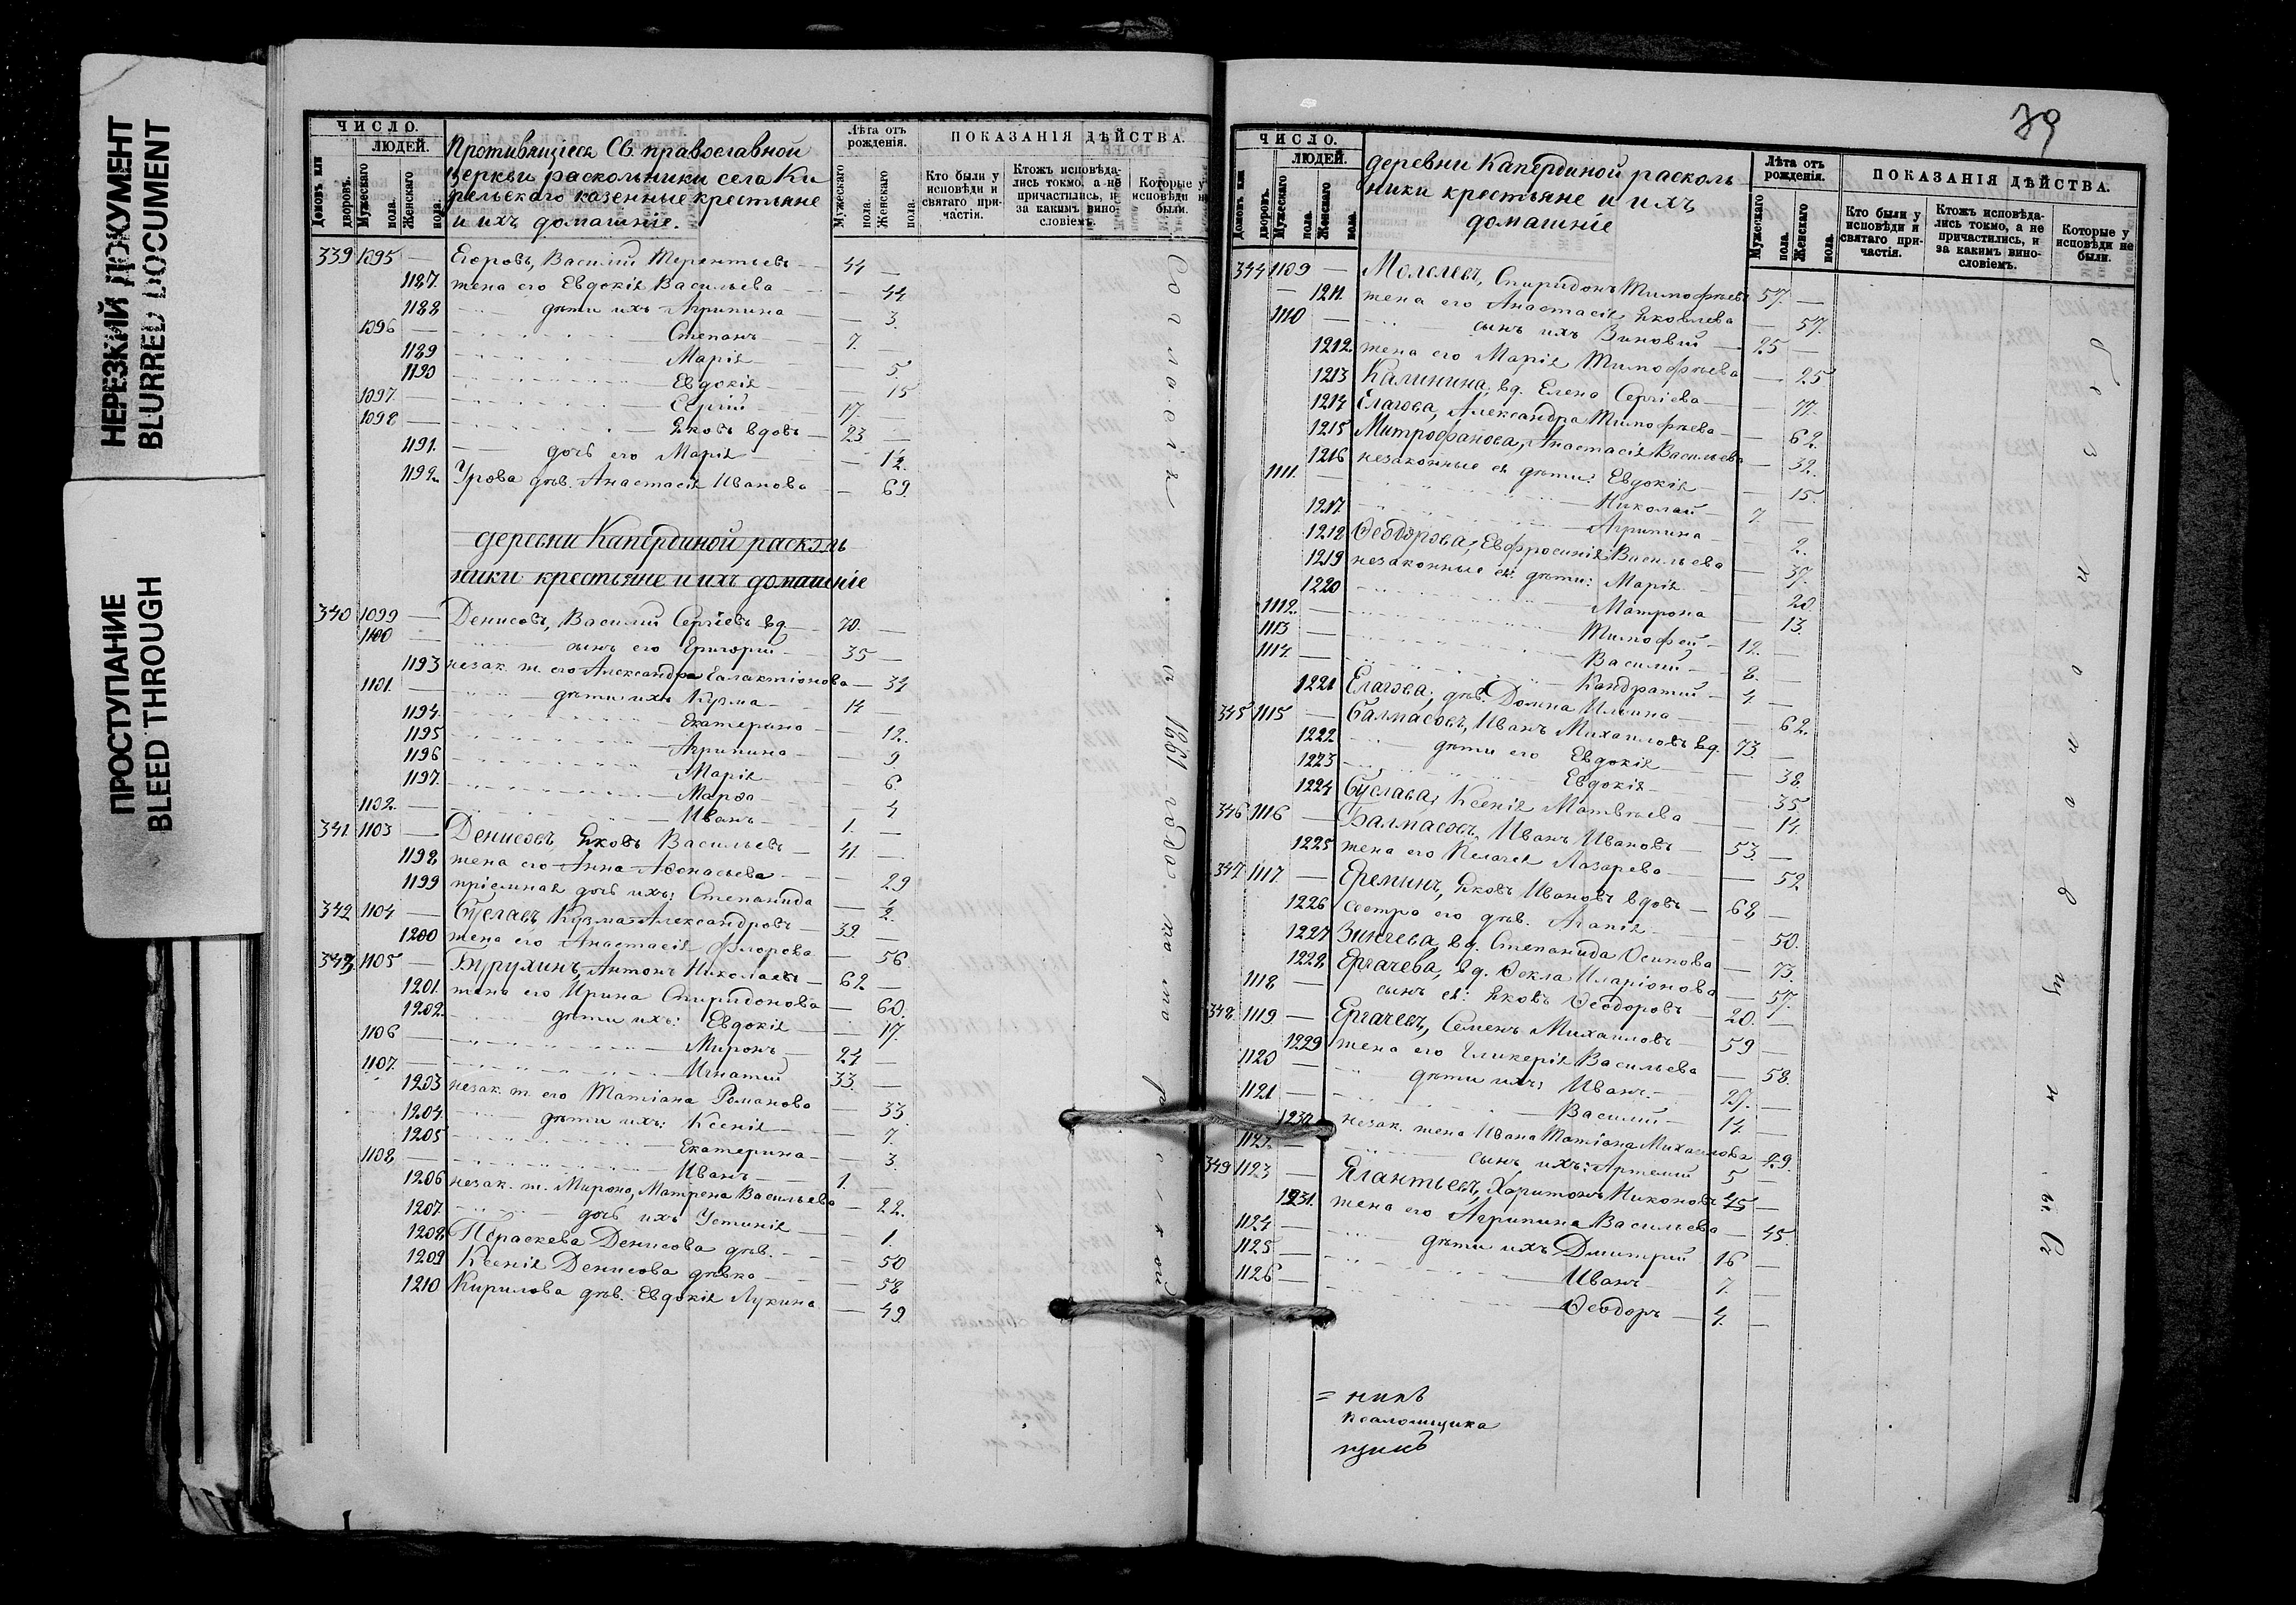 НЕРЕЗКИЙ ДОКУМЕНТ
BLURRED DOCUMENT
ПРОСТУПАНИЕ
BLEED THROUGH
ЧИСЛО.
ЛЮДЕЙ.
Домовъ или дворовъ.
Мужескаго пола.
Женскаго пола.
Противящіеся Св. православной
церкви раскольники села Ки
рельскаго казенные крестьяне
и ихъ домашніе.
Лѣта отъ рожденія.
Мужескаго пола.
Женскаго пола.
ПОКАЗАНІЯ ДѢЙСТВА.
Кто были у исповѣди и святаго при-частія.
Ктожъ исповѣда-лись токмо, а не причастились, и за какимъ вино-словіемъ.
Которые у исповѣди не были.
339 1095 — Егоровъ, Василій Терентьевъ — 44 —
1187. жена его Евдокія Васильева — 44
1188 дѣти ихъ Агрипина — 3.
1096 — Степанъ 7. —
1189 Марія — 5
1190 Евдокія — 15
1097. — Сергій — 17. —
1098 — Яковъ вдовъ — 23 —
1191. — дочь его Марія — 1/2.
1192. Урова дѣв. Анастасія Иванова — 69.
деревни Капердиной расколь
ники крестьяне и ихъ домашніе
340 1099 — Денисовъ, Василій Сергіевъ вд. — 70. —
1100 — сынъ его Григорій — 35 —
1193 незак. ж. его Александра Галактіонова — 34
1101. — дѣти ихъ Кузма — 14 —
1194. Екатерина — 12.
1195 Агрипина — 9.
1196 Марія — 6.
1197. Марѳа — 4
1102. — Иванъ — 1. —
341. 1103 — Денисовъ, Яковъ Васильевъ — 41. —
1198 жена его Анна Аѳонасьева — 29
1199 пріемная дочь ихъ: Степанида — 1/2.
342 1104 — Буславъ Кузма Александровъ — 39. —
1200 жена его Анастасія Флорова — 56.
343 1105 — Бурухинъ, Антонъ Николаевъ — 62 —
1201. жена его Ирина Спиридонова — 60.
1202. дѣти ихъ: Евдокія — 17.
1106 — Миронъ — 24 —
1107. — Игнатій 33. —
1203 незак. ж. его Татіана Романова — 33.
1204. дѣти ихъ: Ксенія — 7.
1205 Екатерина — 3.
1108 — Иванъ — 1. —
1206 незак. ж. Мирона, Матрена Васильева — 22.
1207 дочь ихъ Устинія — 1.
1208 Параскева Денисова дѣв. — 50
1209 Ксенія Денисова дѣвка — 58
1210 Кирилова дѣв. Евдокія Лукина — 49.
за 1881 годъ
39
ЧИСЛО.
ЛЮДЕЙ.
Домовъ или дворовъ.
Мужескаго пола.
Женскаго пола.
деревни Капердиной расколь
ники крестьяне и ихъ
домашніе
Лѣта отъ рожденія.
Мужескаго пола.
Женскаго пола.
ПОКАЗАНІЯ ДѢЙСТВА.
Кто были у исповѣди и святаго при-частія.
Ктожъ исповѣда-лись токмо, а не причастились, и за какимъ вино-словіемъ.
Которые у исповѣди не были.
344 1109 — Спиридонъ Тимофѣевъ 57. —
— 1211. жена его Анастасія Яковлева — 57.
1110 — сынъ ихъ Зиновій — 25 —
1212. жена его Марія Тимофѣева — 25
1213 Калинина, вд. Елена Сергіева — 77.
1214 Елагова, Александра Тимофѣева — 62.
1215 Митрофанова, Анастасія Васильева — 32.
1216 незаконные ея дѣти: Евдокія — 15.
1111. — Николай — 7. —
1217. Агрипина — 2.
1218 Ѳеодорова, Евфросинія Васильева — 37.
1219 незаконные ея дѣти: Марія — 20.
1220 Матрона — 13.
1112. — Тимофей — 12. —
1113 — Василій — 8. —
1114. — Кандратій — 4 —
1221 Елагова, дѣв. Домна Ильина — 62.
345 1115 — Балмасовъ, Иванъ Михаиловъ вд. 73. —
1222 дѣти его Евдокія — 38.
1223 Евдокія — 35.
1224 Буслава, Ксенія Матвѣева — 14.
346 1116 — Балмасовъ, Иванъ Ивановъ — 53. —
1225 жена его Пелагея Лазарева — 52
347 1117. — Ереминъ, Яковъ Ивановъ вдовъ — 68 —
1226 сестра его дѣв. Агапія — 50.
1227 Зинчева, вд. Степанида Осипова — 73.
1228 Ергачева, вд. Ѳекла Иларіонова — 57.
1118 — сынъ ея: Яковъ Ѳеодоровъ — 20. —
348. 1119 — Ергачевъ, Семенъ Михаиловъ — 59 —
1229 жена его Гликерія Васильева — 58.
1120 — дѣти ихъ: Иванъ — 27. —
1121 — Василій — 14. —
1230 незак. жена Ивана Татіана Михаилова 29.
1122. — сынъ ихъ: Артемій 5 —
349 1123 — Харитонъ Никоновъ 45 —
1231. жена его Агрипина Васильева — 45.
1124 — дѣти ихъ Дмитрій 16 —
1125 — Иванъ 7. —
1126 — Ѳеодоръ — 4. —
псаломщика